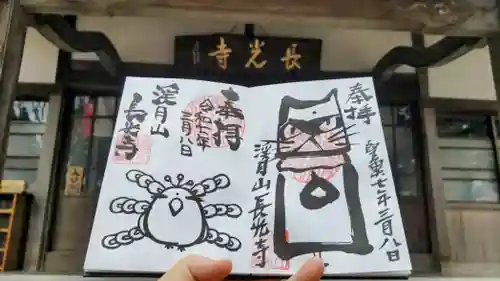 長光寺
奉拝
令和七年
三月八日
渓月山
長光寺
奉拝
令和七年三月八日
渓月山長光寺